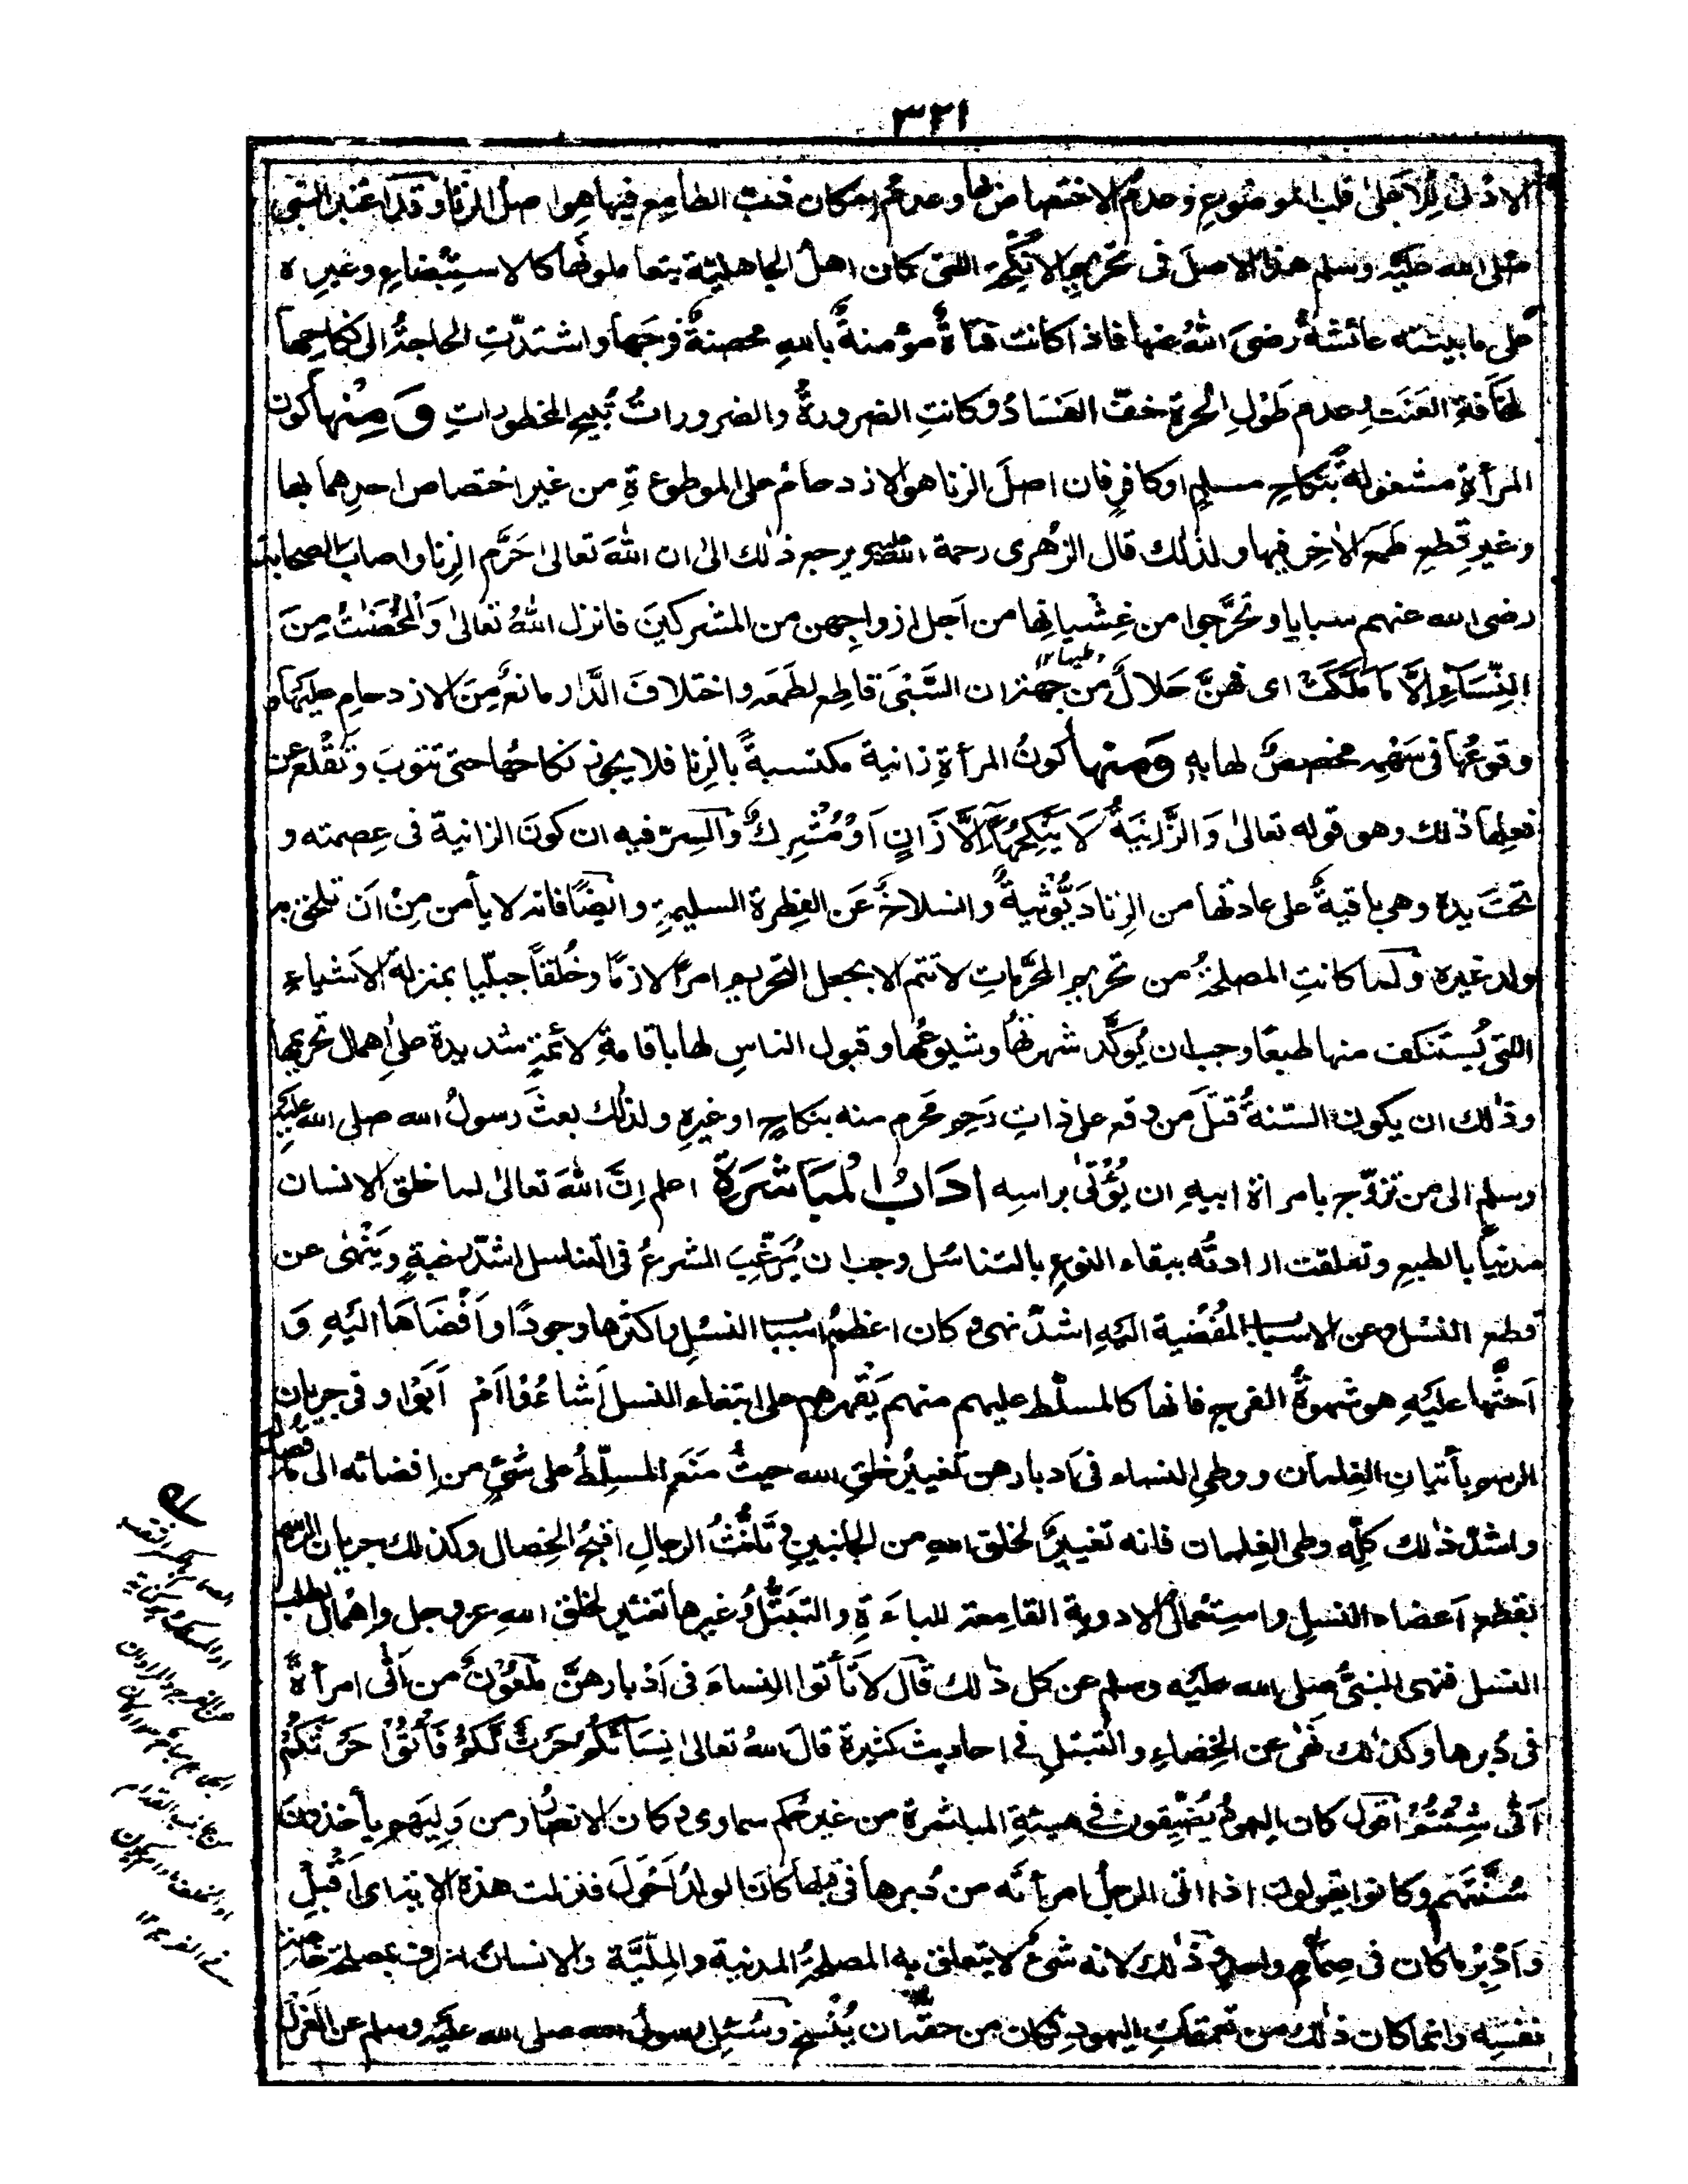 ٣٢١
الاذلال ... على قلب الموضوع وعدم الاختصاص بها وعدم امكان ذب الطامع فيها هو اصل الزنا وقد اعتبر النبى
صلى الله عليه وسلم هذا الاصل فى تحريم الانكحة اللتى كان اهل الجاهلية يتعاملونها كالاستبضاع وغيره
على ما بينته عائشة رضى الله عنها فاذا كانت فتاة مؤمنة بالله محصنة فرجها واشتدت الحاجة الى نكاحها
لمخافة العنت وعدم طول الحرة خف الفساد وكانت الضرورة والضرورات تبيح المحظورات ومنها كون
المرأة مشغولة بنكاح مسلم او كافر فان اصل الزنا هو الازدحام على الموطوءة من غير اختصاص احدهما بها
وغير قطع طمع الاخر فيها ولذلك قال الزهرى رحمة الله عليه ويرجع ذلك الى ان الله تعالى حرم الزنا واصاب الصحابة
رضى الله عنهم سبايا وتحرجوا من غشيانها من اجل ازواجهن من المشركين فانزل الله تعالى والمحصنت من
النساء الا ما ملكت اى فهن حلال من جهة ان السبى قاطع لطمعه واختلاف الدار مانع من الازدحام عليها و
وطيها ١٢
وقوعها فى سهمه مخصص لها به ومنها كون المرأة زانية مكتسبة بالزنا فلا يجوز نكاحها حتى تتوب وتقلع عن
فعلها ذلك وهو قوله تعالى والزانية لا ينكحها الا زان او مشرك والسر فيه ان كون الزانية فى عصمته و
تحت يده وهى باقية على عادتها من الزنا ديوثية وانسلاخ عن الفطرة السليمة وايضا فانه لا يأمن من ان تلحق به
ولد غيره ولما كانت المصلحة من تحريم المحرمات لا تتم الا بجعل التحريم امرا لازما وخلقا جبليا بمنزلة الاشياء
اللتى يستنكف منها طبعا وجب ان يؤكد شهرتها وشيوعها وقبول الناس لها باقامة لائمة شديدة على اهمال تحريمها
وذلك ان يكون السنة قتل من وقع على ذات رحم محرم منه بنكاح او غيره ولذلك بعث رسول الله صلى الله عليه
وسلم الى من تزوج بامرأة ابيه ان يؤتى براسه اداب المباشرة اعلم ان الله تعالى لما خلق الانسان
مدنيا بالطبع وتعلقت ارادته ببقاء النوع بالتناسل وجب ان يرغب الشرع فى التناسل اشد رغبة وينهى عن
قطع النسل وعن الاسباب المفضية اليه اشد نهى وكان اعظم اسباب النسل واكثرها وجودا وافضاها اليه و
احثها عليه هو شهوة الفرج فانها كالمسلط عليهم منهم يقهرهم على ابتغاء النسل اشاءوا ام ابوا وفى جريان
الرسم بأتيان الغلمان ووطى النساء فى ادبارهن تغيير خلق الله حيث منع المسلط على شئ من افضائه الى ما قصد له
واشد ذلك كله وطى الغلمان فانه تغيير لخلق الله من الجانبين وتأنث الرجال اقبح الخصال وكذلك جريان الرسم
بقطع اعضاء النسل واستعمال الادوية القامعة للباءة والتبتل وغيرها تغيير لخلق الله عز وجل واهمال لطلب
النسل فنهى النبى صلى الله عليه وسلم عن كل ذلك قال لا تأتوا النساء فى ادبارهن ملعون من اتى امرأة
فى دبرها وكذلك نهى عن الخصاء والتبتل فى احاديث كثيرة قال الله تعالى نساؤكم حرث لكم فأتوا حرثكم
انى شئتم اقول كان اليهود يضيقون فى هيئة المباشرة من غير حكم سماوى وكان الانصار ومن وليهم يأخذون
سنتهم وكانوا يقولون اذا اتى الرجل امرأته من دبرها فى قبلها كان الولد احول فنزلت هذه الاية اى اقبل
وادبر ما كان فى صمام واحد و ذلك لانه شئ لا يتعلق به المصلحة المدنية والملية والانسان اعرف بمصلحة خاصة
نفسه وانما كان ذلك من تعمقات اليهود فكان من حقه ان ينسخ وسئل رسول الله صلى الله عليه وسلم عن العزل